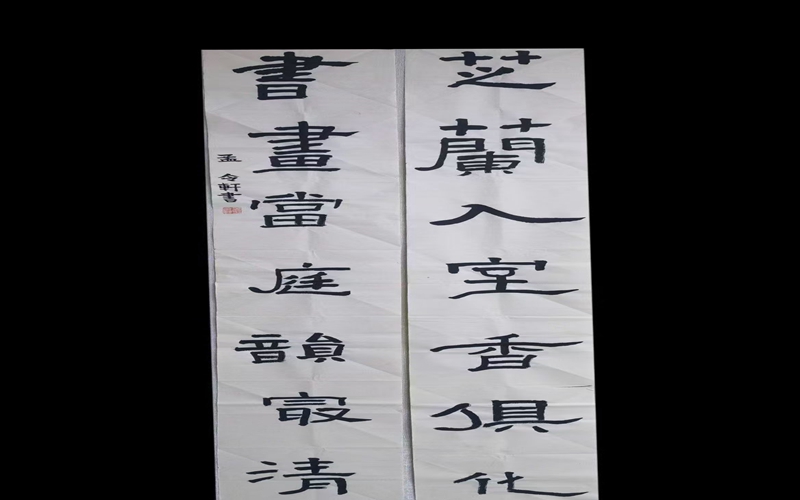 芝蘭入室香俱化
書畫當庭韻最清
孟令軒書